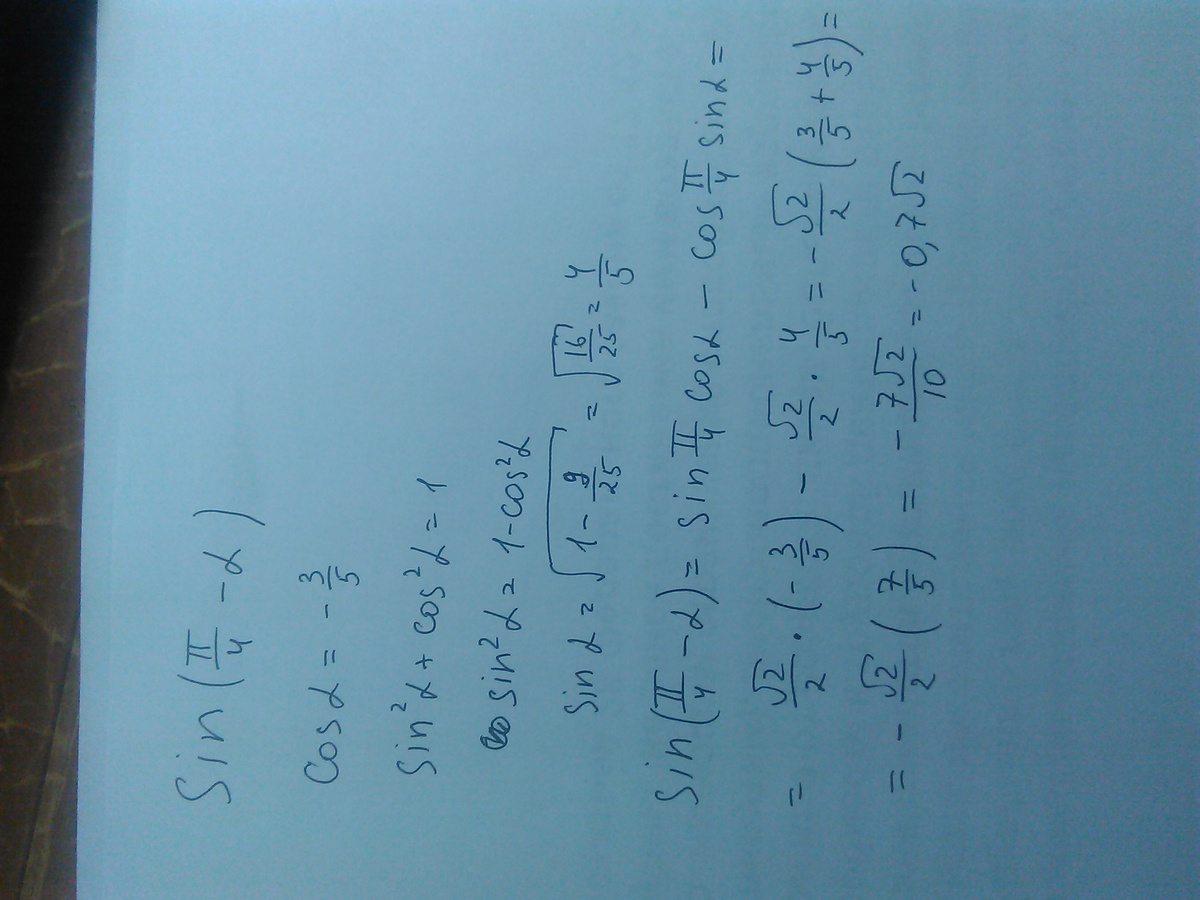 Sin(π/4 - α)
Cosα = -3/5
Sin²α + cos²α = 1
sin²α = 1 - cos²α
Sinα = √(1 - 9/25) = √(16/25) = 4/5
Sin(π/4 - α) = sin π/4 cosα - cos π/4 sinα =
= √2/2 · (-3/5) - √2/2 · 4/5 = -√2/2 (3/5 + 4/5) =
= -√2/2 (7/5) = -7√2/10 = -0,7√2